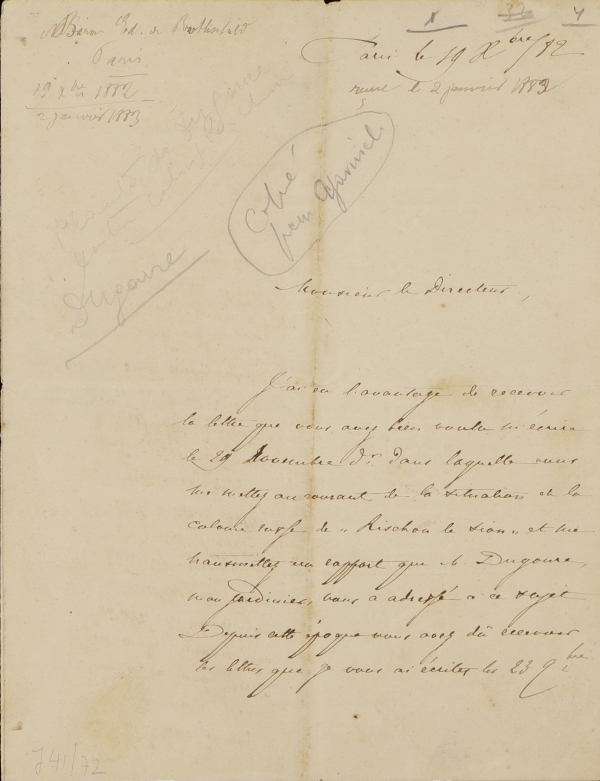 M Baron Ed. de Rothschild
Paris
19 Xbre 1882
2 janvier 1883
X 72 4
Paris le 19 Xbre/82
reçue le 2 janvier 1883
Dugourre
Copié
pour
Monsieur le Directeur,
J'ai eu l'avantage de recevoir
la lettre que vous avez bien voulu m'écrire
le 29 Novembre dr. dans laquelle vous
me mettez au courant de la situation de la
colonie russe de „Rischon le Zion" et me
transmettez un rapport que M Dugourre,
mon jardinier, vous a adressé à ce sujet
Depuis cette époque vous avez dû recevoir
les lettres que je vous ai écrites les 23 9bre
J41/72